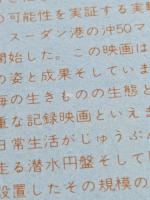 の可能性を実証する実験
スーダン港の沖50マ
開始した。この映画は
の姿と成果そしていま
海の生きものの生態と
重な記録映画といえま
日常生活がじゅうぶん
生る潜水円盤そして
設置したその規模の